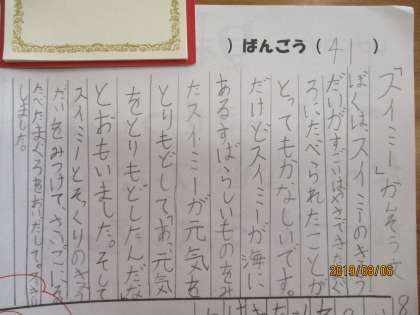 ）ばんごう（４１）
「スイミー」かんそう
ぼくは、スイミーのきょう
だいがすごいはやさできたまぐ
ろにたべられたことが
とってもかなしいです。
だけどスイミーが海に
あるすばらしいものをみ
たスイミーが元気を
とりもどして「あ、元気
をとりもどしたんだな」
とおもいました。そして
スイミーとそっくりのきょう
だいをみつけて、さいごに
たべたまぐろをおいだして
しました。
2019/08/06